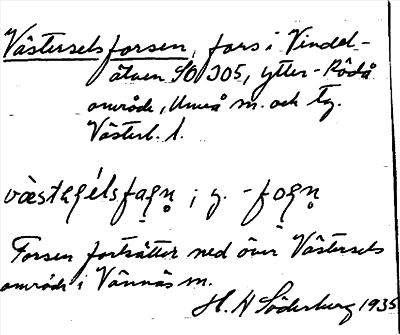 Västerselsforsen, fors i Vindel-
älven SO 305, ytter-Rödå
område, Umeå sn. och tg.
Västerb. l.
forsen fortsätter ned över Västersels
område i Vännäs sn.
H. N Söderberg 1935